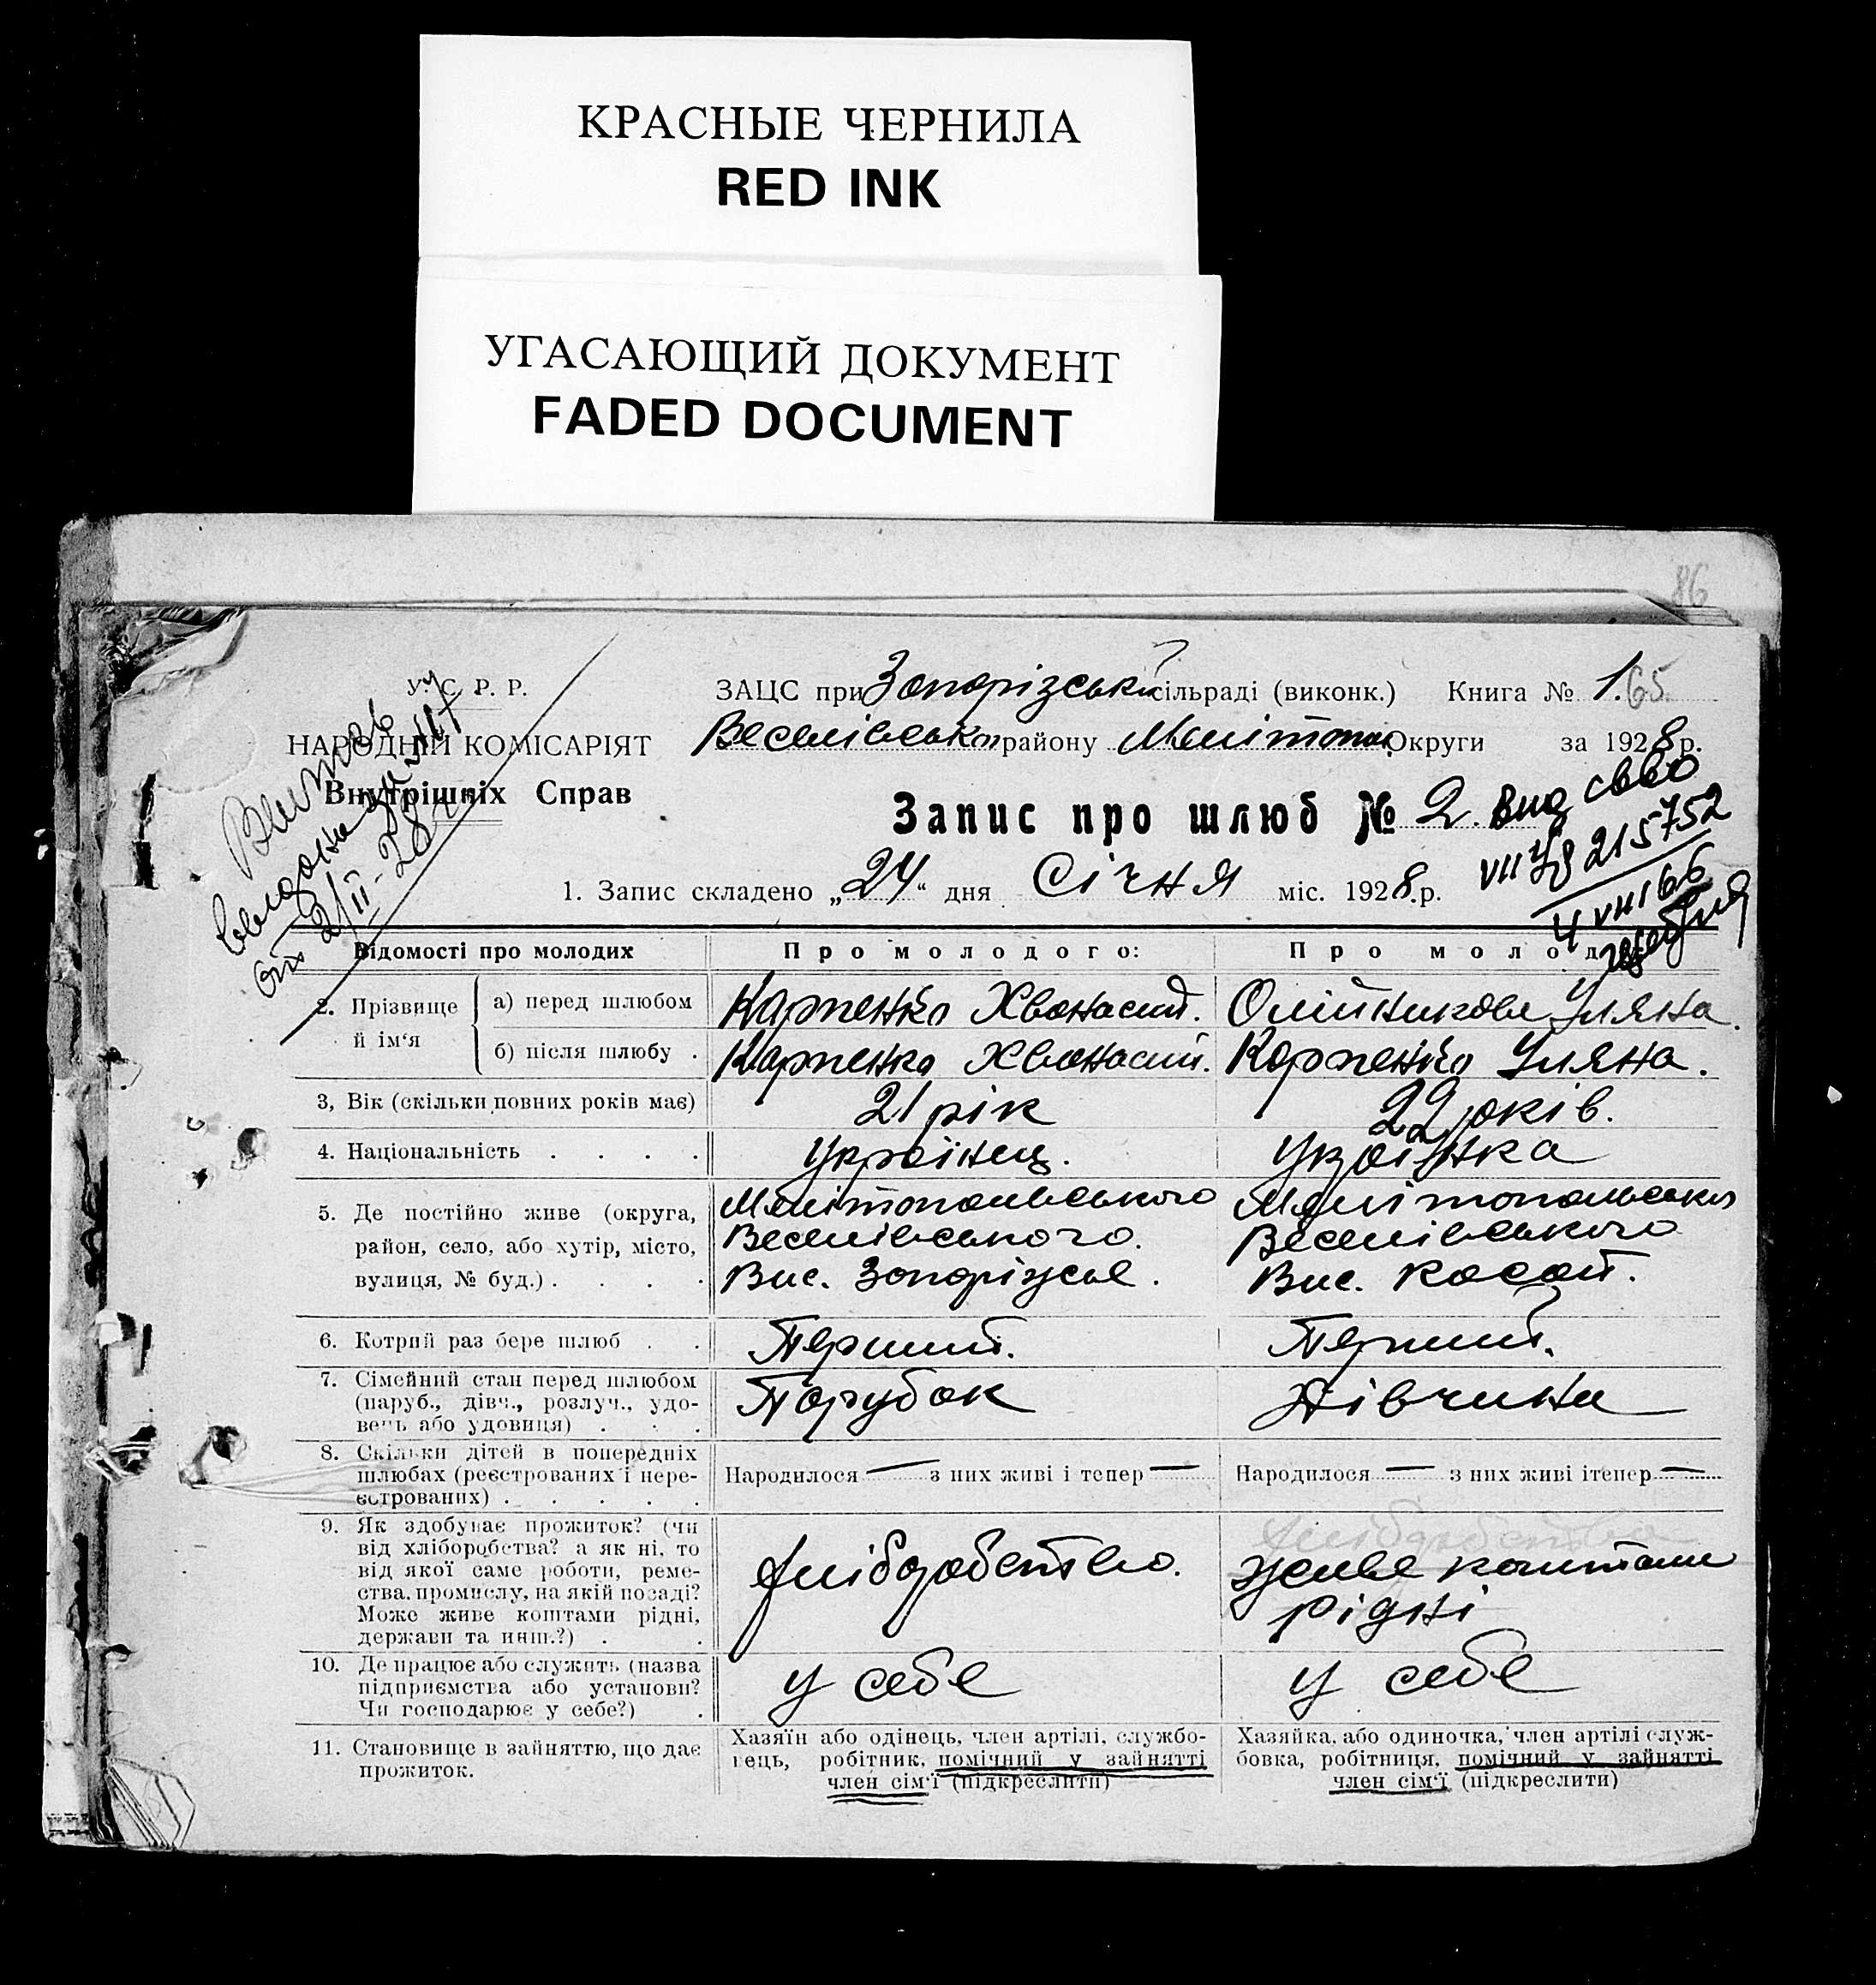 КРАСНЫЕ ЧЕРНИЛА
RED INK
УГАСАЮЩИЙ ДОКУМЕНТ
FADED DOCUMENT
86
У. С. Р. Р.
НАРОДНІЙ КОМІСАРІЯТ
Внутрішніх Справ
Витяг
от 2/II-28 г.
ЗАЦС при Запорізській сільраді (виконк.) Книга № 1. 65.
Веселівськ району Меліто Округи за 1928 р.
Запис про шлюб № 2.
вид св-во
VII 215752
4 VIII 66
1. Запис складено „24“ дня Січня міс. 1928.р.
Відомості про молодих Про молодого: Про молод
2. Прізвище й ім‘я
а) перед шлюбом Карпенко Хванасий. Олійникова Уляна.
б) після шлюбу . Карпенко Хванасий. Карпенко Уляна.
3, Вік (скільки повних років має) 21 рік 22 років.
4. Національність . . . . Українец. Українка
5. Де постійно живе (округа, район, село, або хутір, місто, вулиця, № буд.) . . . .
Мелітопольського
Веселівського.
Вис. Запоріжсье.
Мелітопольського
Веселівського
Вис.
6. Котрий раз бере шлюб . . Перший. Перший.
7. Сімейний стан перед шлюбом
(паруб., дівч., розлуч., удо-
вець або удовиця) . . .
Парубок Дівчина
8. Скільки дітей в попередніх
шлюбах (реєстрованих і нере-
єстрованих) . . . . .
Народилося — з них живі і тепер —
Народилося — з них живі ітепер —
9. Як здобуває прожиток? (чи
від хліборобства? а як ні, то
від якої саме роботи, реме-
ства, промислу, на якій посаді?
Може живе коштами рідні,
держави та инш.?) . .
хліборобство.
хліборобство
живе коштами
рідні
10. Де працює або служить (назва
підприємства або установи?
Чи господарює у себе?) .
у себе у себе
11. Становище в зайняттю, що дає
прожиток.
Хазяїн або одінець, член артілі, службо-
вець, робітник, помічний у зайнятті
член сім‘ї (підкреслити)
Хазяйка, або одиночка, член артілі служ-
бовка, робітниця, помічний у зайнятті
член сім‘ї (підкреслити)